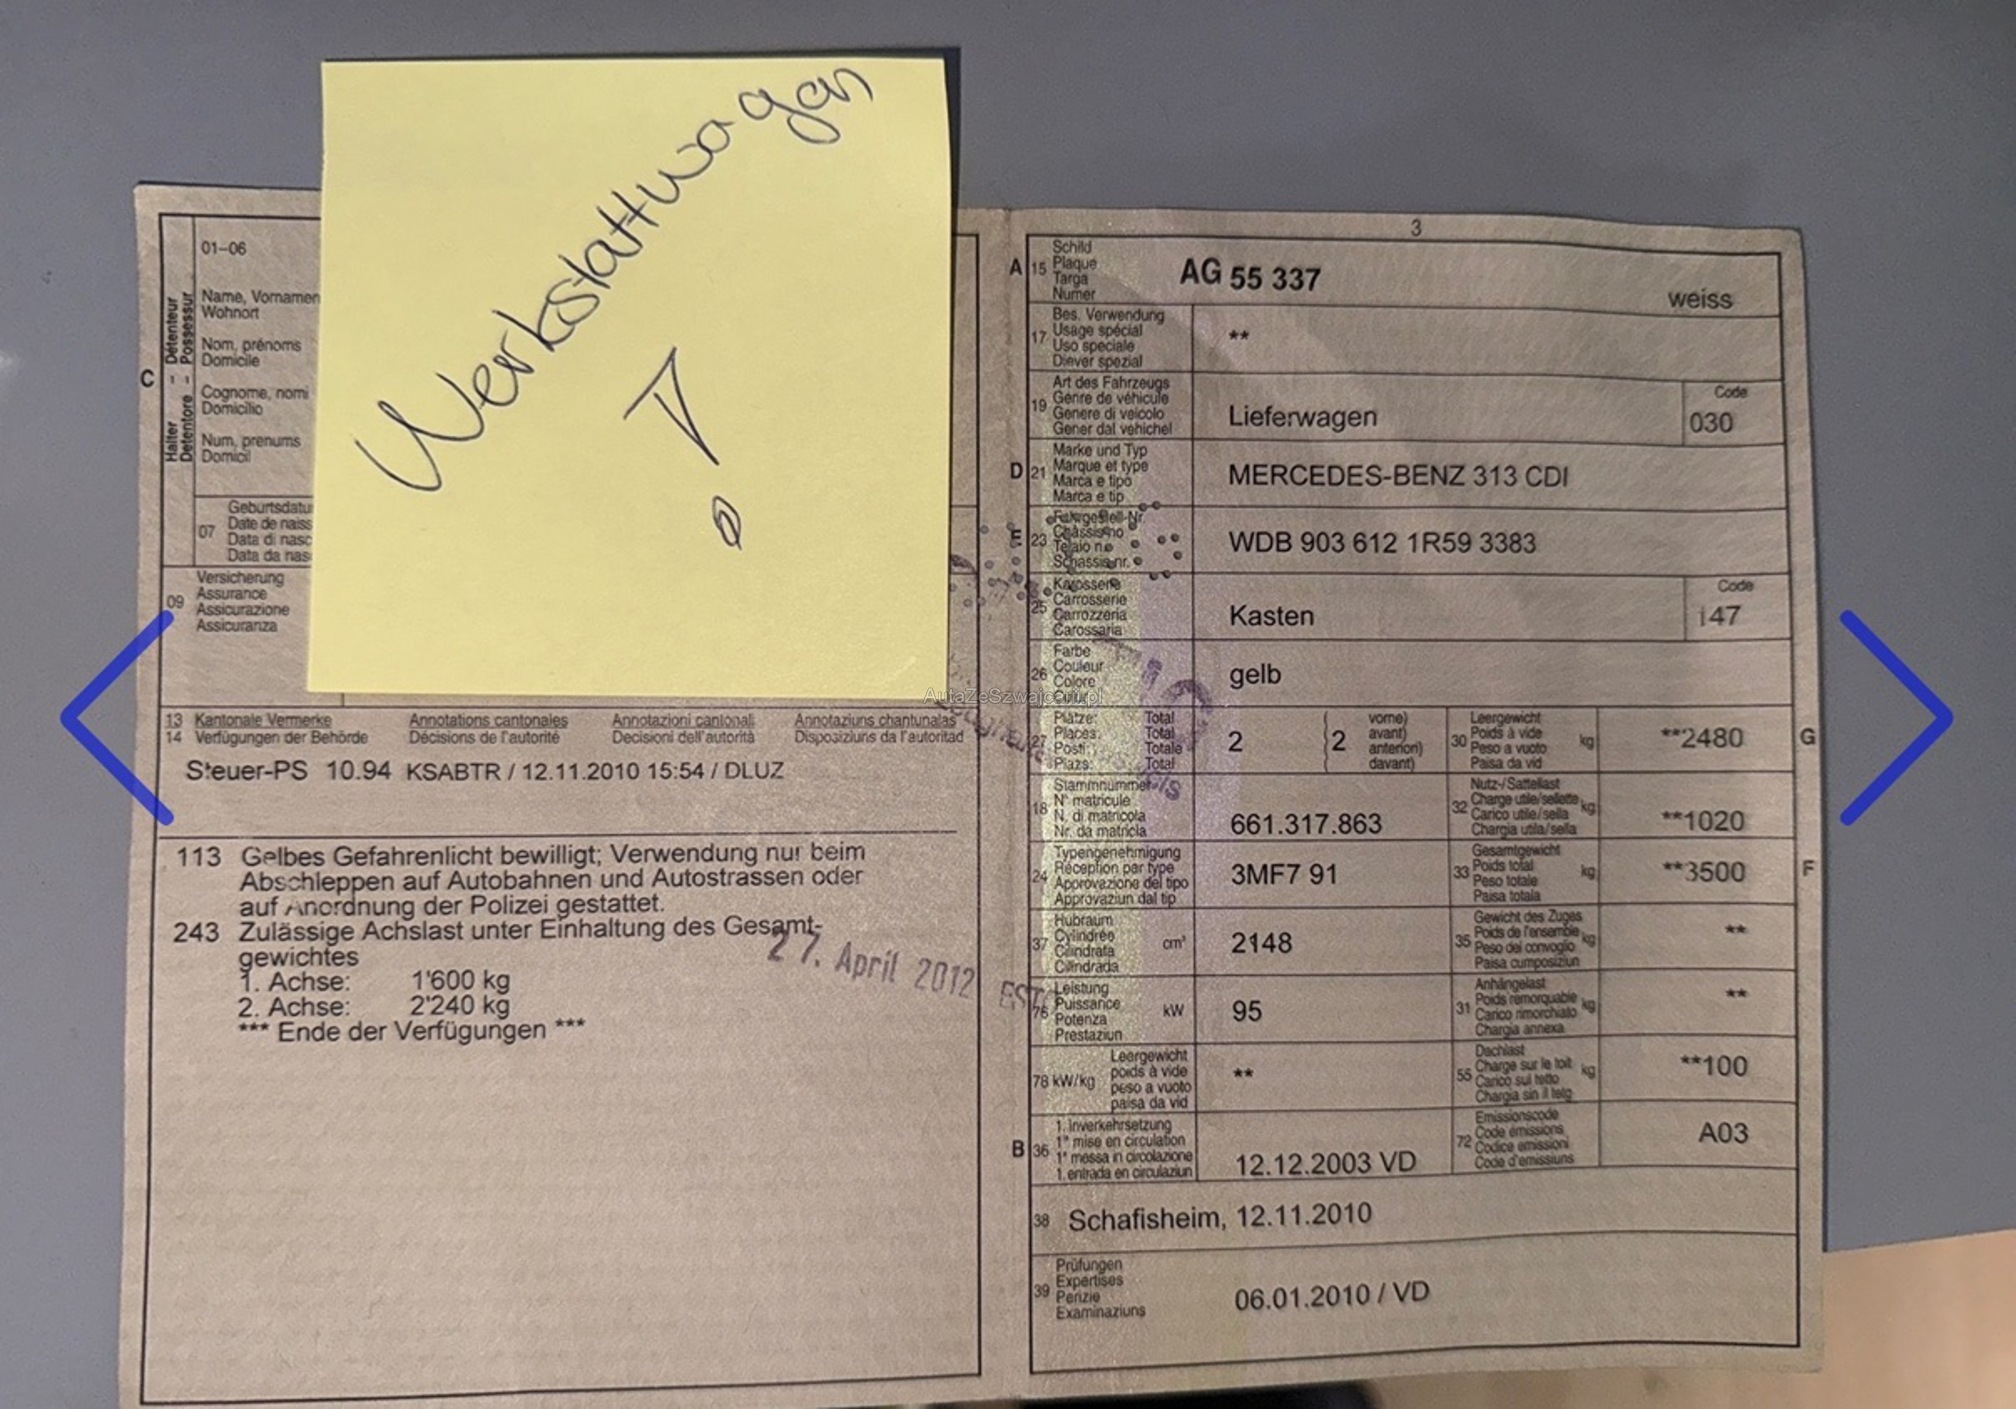 Werkstattwagen
!
01–06
C
Halter - Détenteur
Detentore - Possessur
Name, Vornamen
Wohnort
Nom, prénoms
Domicile
Cognome, nomi
Domicilio
Num, prenums
Domicil
07
Geburtsdatu
Date de naiss
Data di nasc
Data da nas
09
Versicherung
Assurance
Assicurazione
Assicuranza
13 Kantonale Vermerke Annotations cantonales Annotazioni cantonali Annotaziuns chantunalas
14 Verfügungen der Behörde Décisions de l'autorité Decisioni dell'autorità Disposiziuns da l'autoritad
Steuer-PS 10.94 KSABTR / 12.11.2010 15:54 / DLUZ
113 Gelbes Gefahrenlicht bewilligt; Verwendung nur beim
Abschleppen auf Autobahnen und Autostrassen oder
auf Anordnung der Polizei gestattet.
243 Zulässige Achslast unter Einhaltung des Gesamt-
gewichtes
1. Achse: 1'600 kg
2. Achse: 2'240 kg
*** Ende der Verfügungen ***
27. April 2012
AutaZeSzwajcarii.pl
3
A 15
Schild
Plaque
Targa
Numer
AG 55 337 weiss
17
Bes. Verwendung
Usage spécial
Uso speciale
Diever spezial
**
19
Art des Fahrzeugs
Genre de véhicule
Genere di veicolo
Gener dal vehichel
Lieferwagen
Code
030
D 21
Marke und Typ
Marque et type
Marca e tipo
Marca e tip
MERCEDES-BENZ 313 CDI
E 23
Fahrgestell-Nr.
Châssis no
Telaio no
Schassis nr.
WDB 903 612 1R59 3383
25
Karosserie
Carrosserie
Carrozzeria
Carossaria
Kasten
Code
147
26
Farbe
Couleur
Colore
gelb
27
Plätze: Total
Places: Total
Posti: Totale
Plazs: Total
2
2
vorne)
avant)
anteriori)
davant)
30
Leergewicht
Poids à vide
Peso a vuoto
Paisa da vid
kg
**2480
G
18
Stammnummer
N° matricule
N. di matricola
Nr. da matricla
661.317.863
32
Nutz-/Sattellast
Charge utile/sellette
Carico utile/sella
Chargia utila/sella
kg
**1020
24
Typengenehmigung
Réception par type
Approvazione del tipo
Approvaziun dal tip
3MF7 91
33
Gesamtgewicht
Poids total
Peso totale
Paisa totala
kg
**3500
F
37
Hubraum
Cylindrée
Cilindrata
Cilindrada
cm³
2148
35
Gewicht des Zuges
Poids de l'ensemble
Peso del convoglio
Paisa cumposiziun
kg
**
76
Leistung
Puissance
Potenza
Prestaziun
kW
95
31
Anhängelast
Poids remorquable
Carico rimorchiato
Chargia annexa
kg
**
78 kW/kg
Leergewicht
poids à vide
peso a vuoto
paisa da vid
**
55
Dachlast
Charge sur le toit
Carico sul tetto
Chargia sin il tetg
kg
**100
B 36
1. Inverkehrsetzung
1re mise en circulation
1a messa in circolazione
1. entrada en circulaziun
12.12.2003 VD
72
Emissionscode
Code émissions
Codice emissioni
Code d'emissiuns
A03
38
Schafisheim, 12.11.2010
39
Prüfungen
Expertises
Perizie
Examinaziuns
06.01.2010 / VD